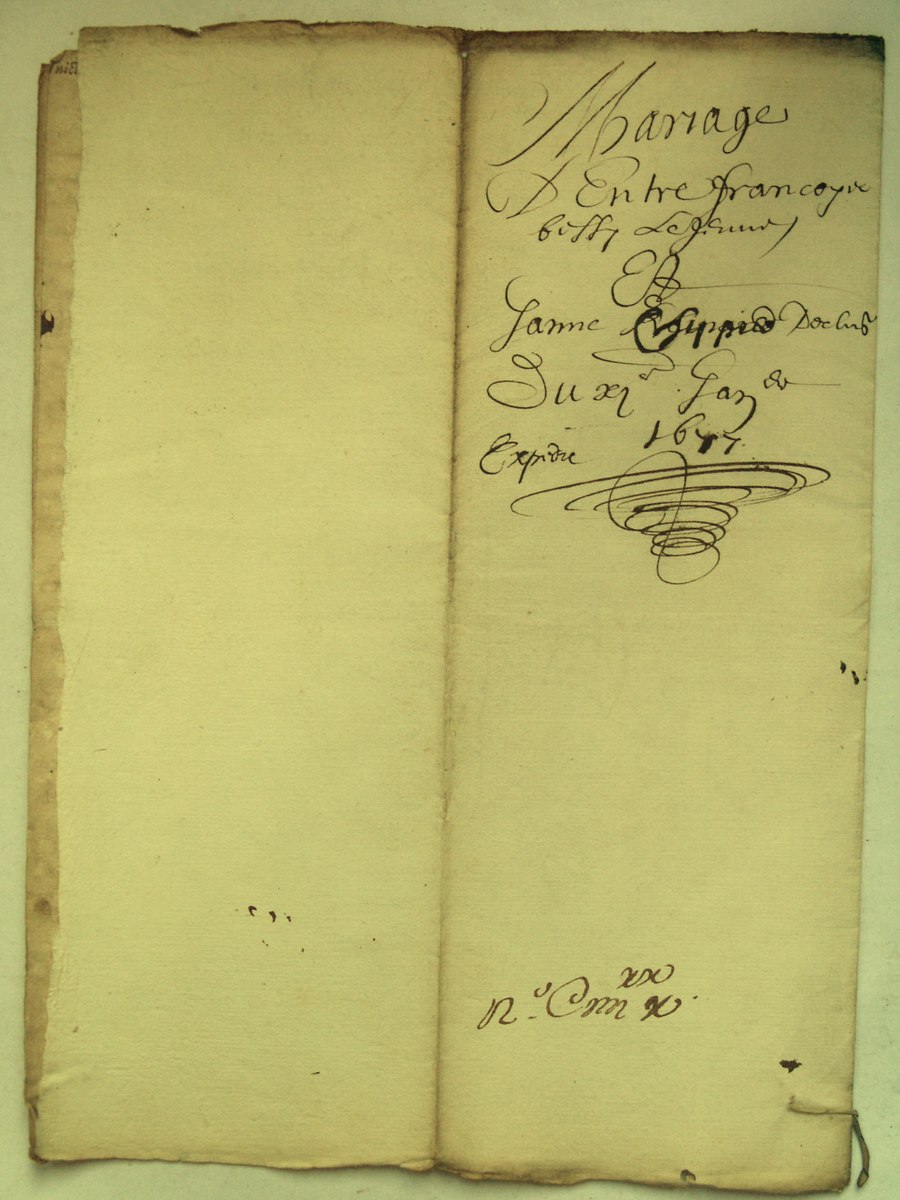 Mariage
D Entre francoyse
bessy Le Jeune
Et
Janne Decluš
Du xje Janer
1677
Expédie
No. C xx x